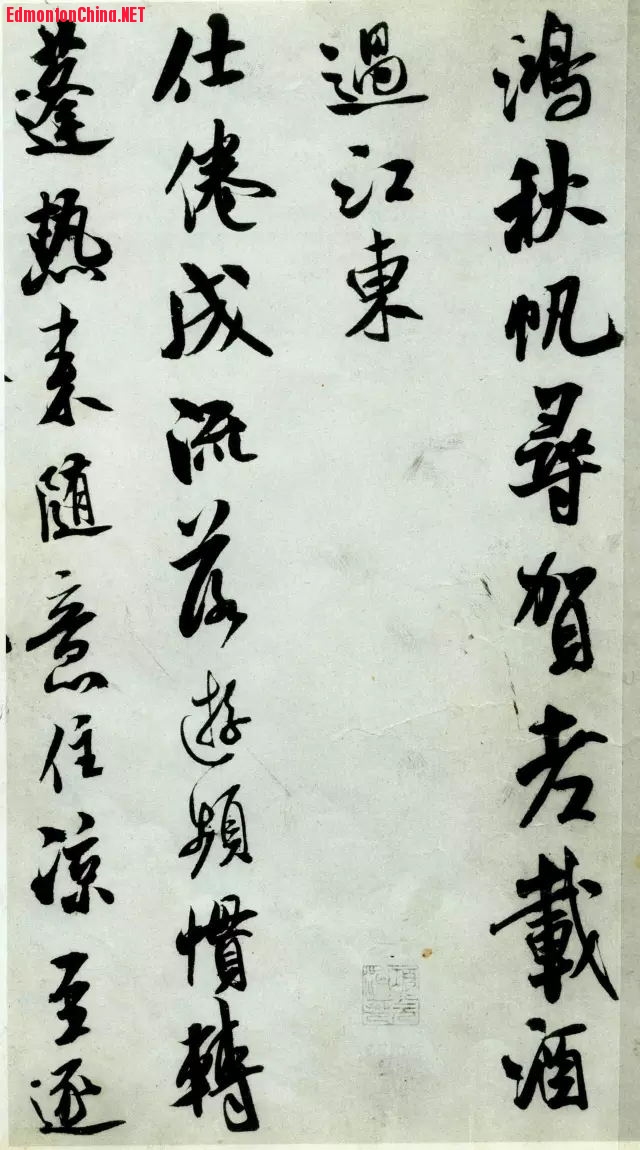 EdmontonChina.NET
鴻秋帆尋賀老載酒
過江東
仕倦成流落遊頻慣轉
蓬熱来随意住涼至逐